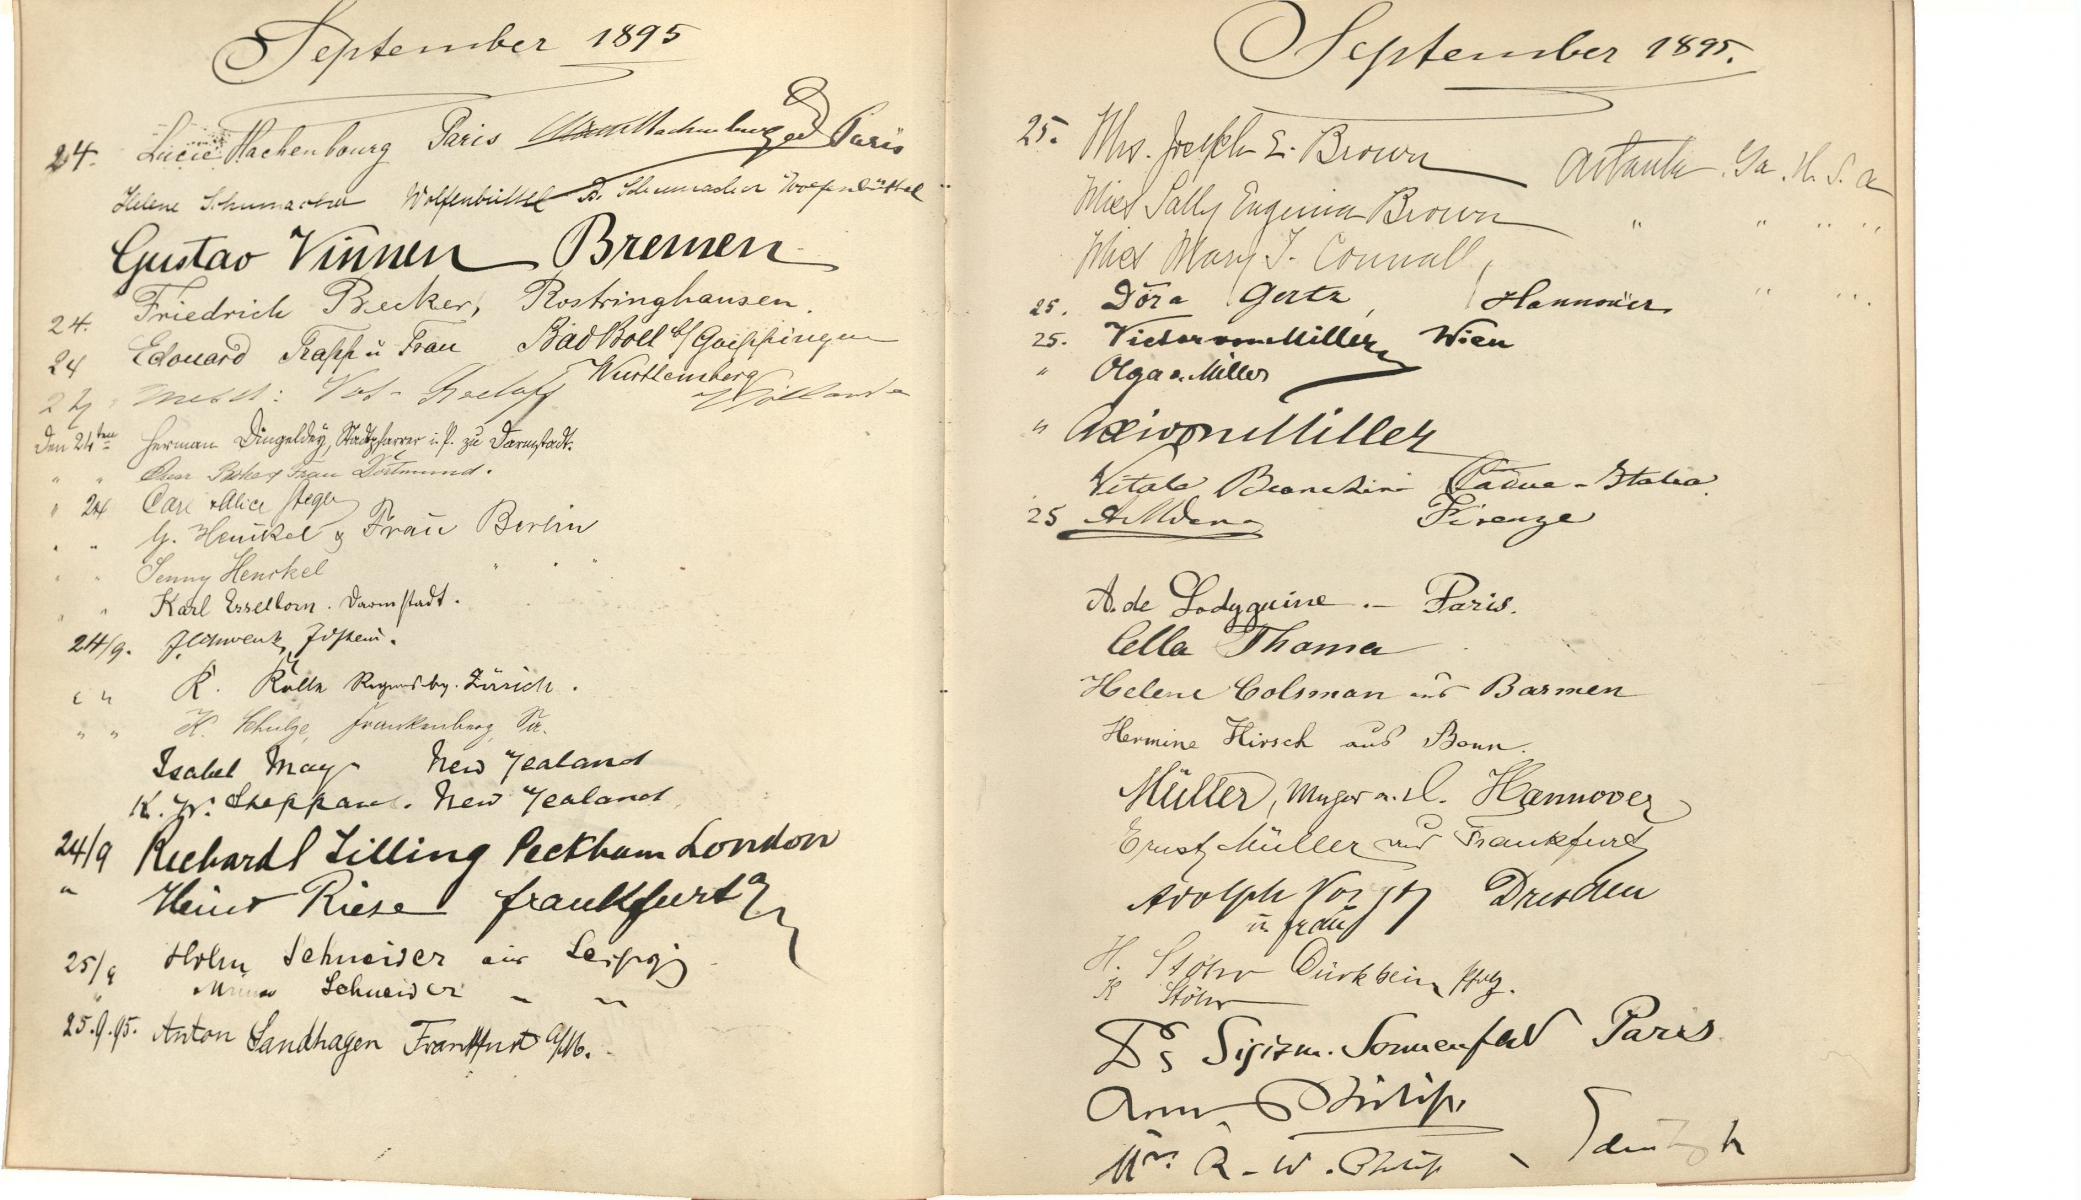 September 1895
24. Lucie Hachenbourg Paris Paris
Helene Schumacher Wolfenbüttel Schumacher Wolfenbüttel
Gustav Vinnen Bremen
24. Friedrich Becker, Rostringhausen.
24 Edouard Trapp u Frau Bad Boll b/ Goeppingen
Württemberg
24
Den 24ten Herman Dingeldey, Stadtpfarrer i. P. zu Darmstadt.
" " Frau Dortmund.
" 24 Carl & Alice
" " G. Henckel & Frau Berlin
" " Jenny Henckel " " "
" " Karl Esselborn. Darmstadt.
24/9.
" " K. Zürich.
" " H. Schulze, Frankenberg, Sa.
Isabel May New Zealand
K. W. Sheppard. New Zealand
24/9 Richard Tilling Peckham London
" Riese Frankfurt a/
25/9 Schneider aus Leipzig
" Schneider " "
25.9.95. Anton Sandhagen Frankfurt a/M.
September 1895.
25. Mrs. Joseph E. Brown Atlanta. Ga. U. S. A
Miss Sally Eugenia Brown " " " "
Miss Mary T. Connally " "
25. Dora Gertz, Hannover.
25. Victor von Miller Wien
" Olga v. Miller
" von Miller
Vitale Padua - Italia
25 Firenze
A. de Lodyguine. - Paris.
Cella Thoma
Helene Colsman aus Barmen
Hermine Hirsch aus Bonn.
Müller, Major a. D. Hannover
Ernst Müller aus Frankfurt
Adolph Dresden
u. Frau
H. Stöhr Dürkheim Pfalz.
K Stöhr
Dr Sigizm. Sonnenfeld Paris
Philip
Mrs R. W. Philip